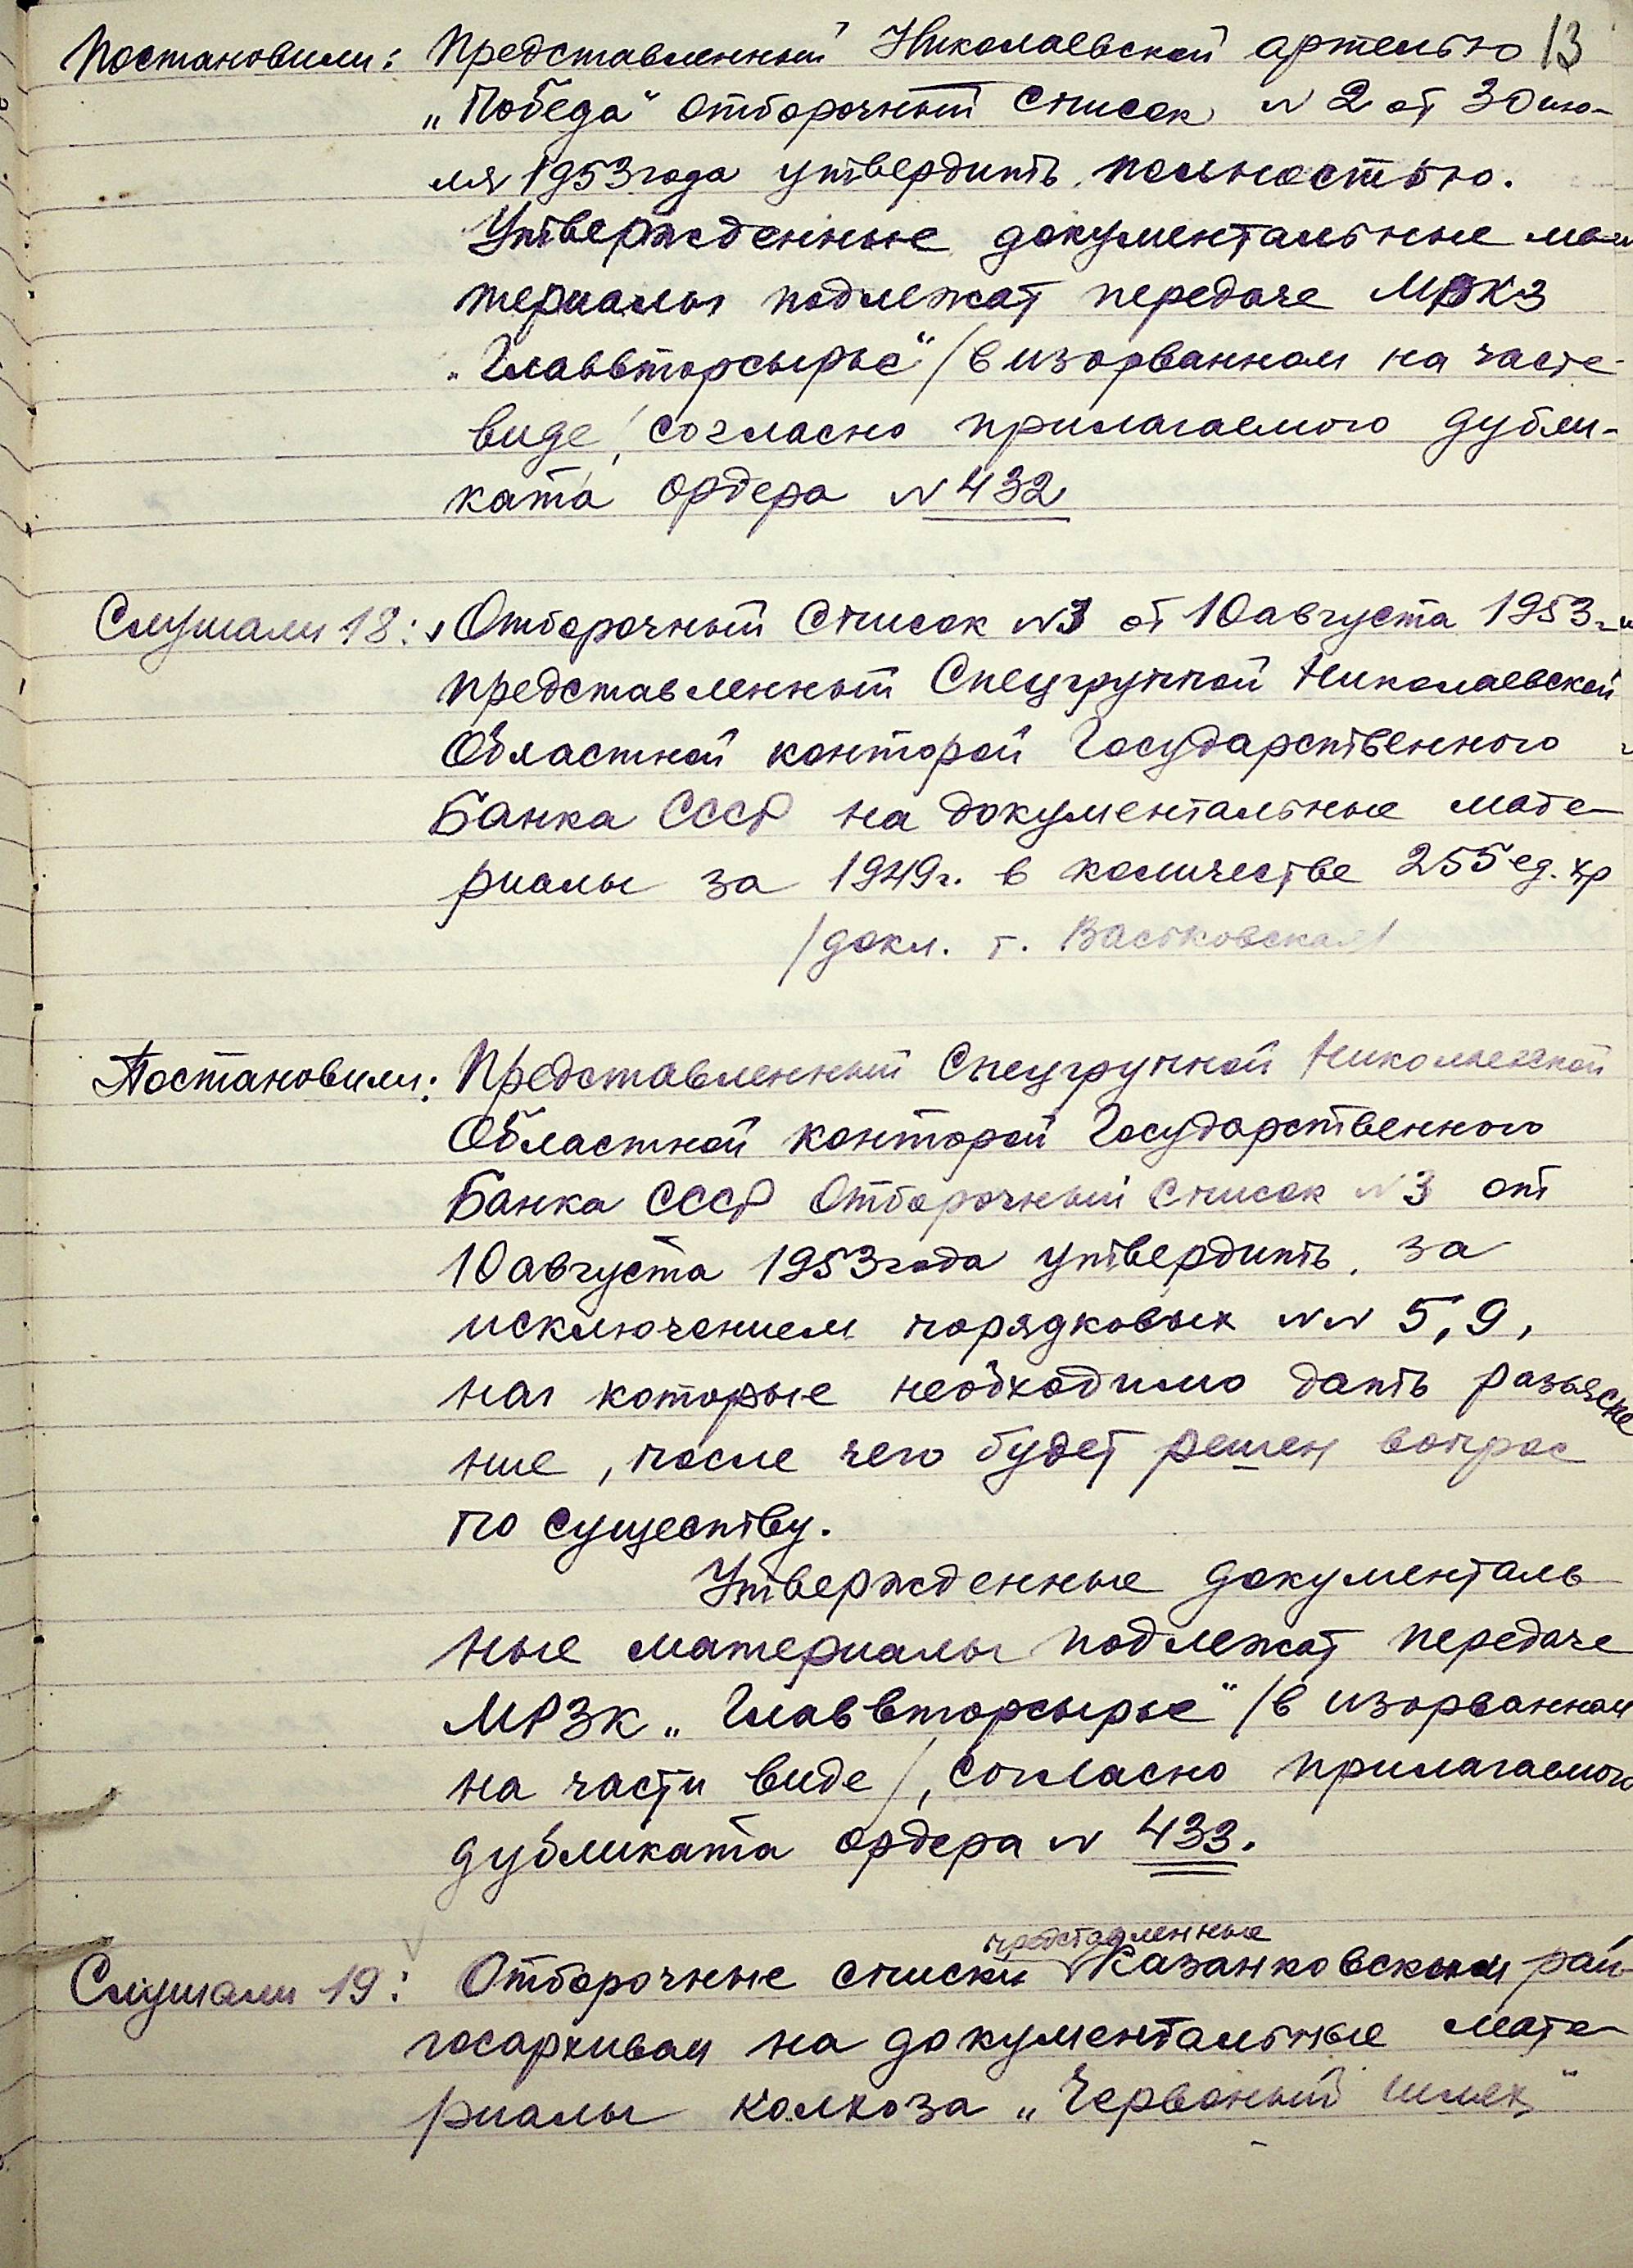 13
Постановили: Представленный Николаевской артелью
„Победа“ отборочный список N 2 от 30 ию-
ля 1953 года утвердить полностью.
Утвержденные документальные ма-
териалы подлежат передаче
„Главвторсырье“ /в изорванном на части
виде/, согласно прилагаемого дубли-
ката ордера N 432
Слушали 18: Отборочный список N3 от 10 августа 1953 г.
представленный Спецгруппой Николаевской
Областной конторой Государственного
Банка СССР на документальные мате-
риалы за 1949 г. в количестве 255 ед. хр
/докл. т. Васьковская/
Постановили: Представленный Спецгруппой Николаевской
Областной конторой Государственного
Банка СССР Отборочный список N3 от
10 августа 1953 года утвердить, за
исключением порядковых NN 5, 9,
на которые необходимо дать разъясне
ние, после чего будет решен вопрос
по существу.
Утвержденные документаль
ные материалы подлежат передаче
МРЗК „Главвторсырье“ /в изорванном
на части виде/, согласно прилагаемого
дубликата ордера N 433.
представленные
Слушали 19: Отборочные списки Казанковским рай
госархивом на документальные мате-
риалы колхоза „Червоный шлях“